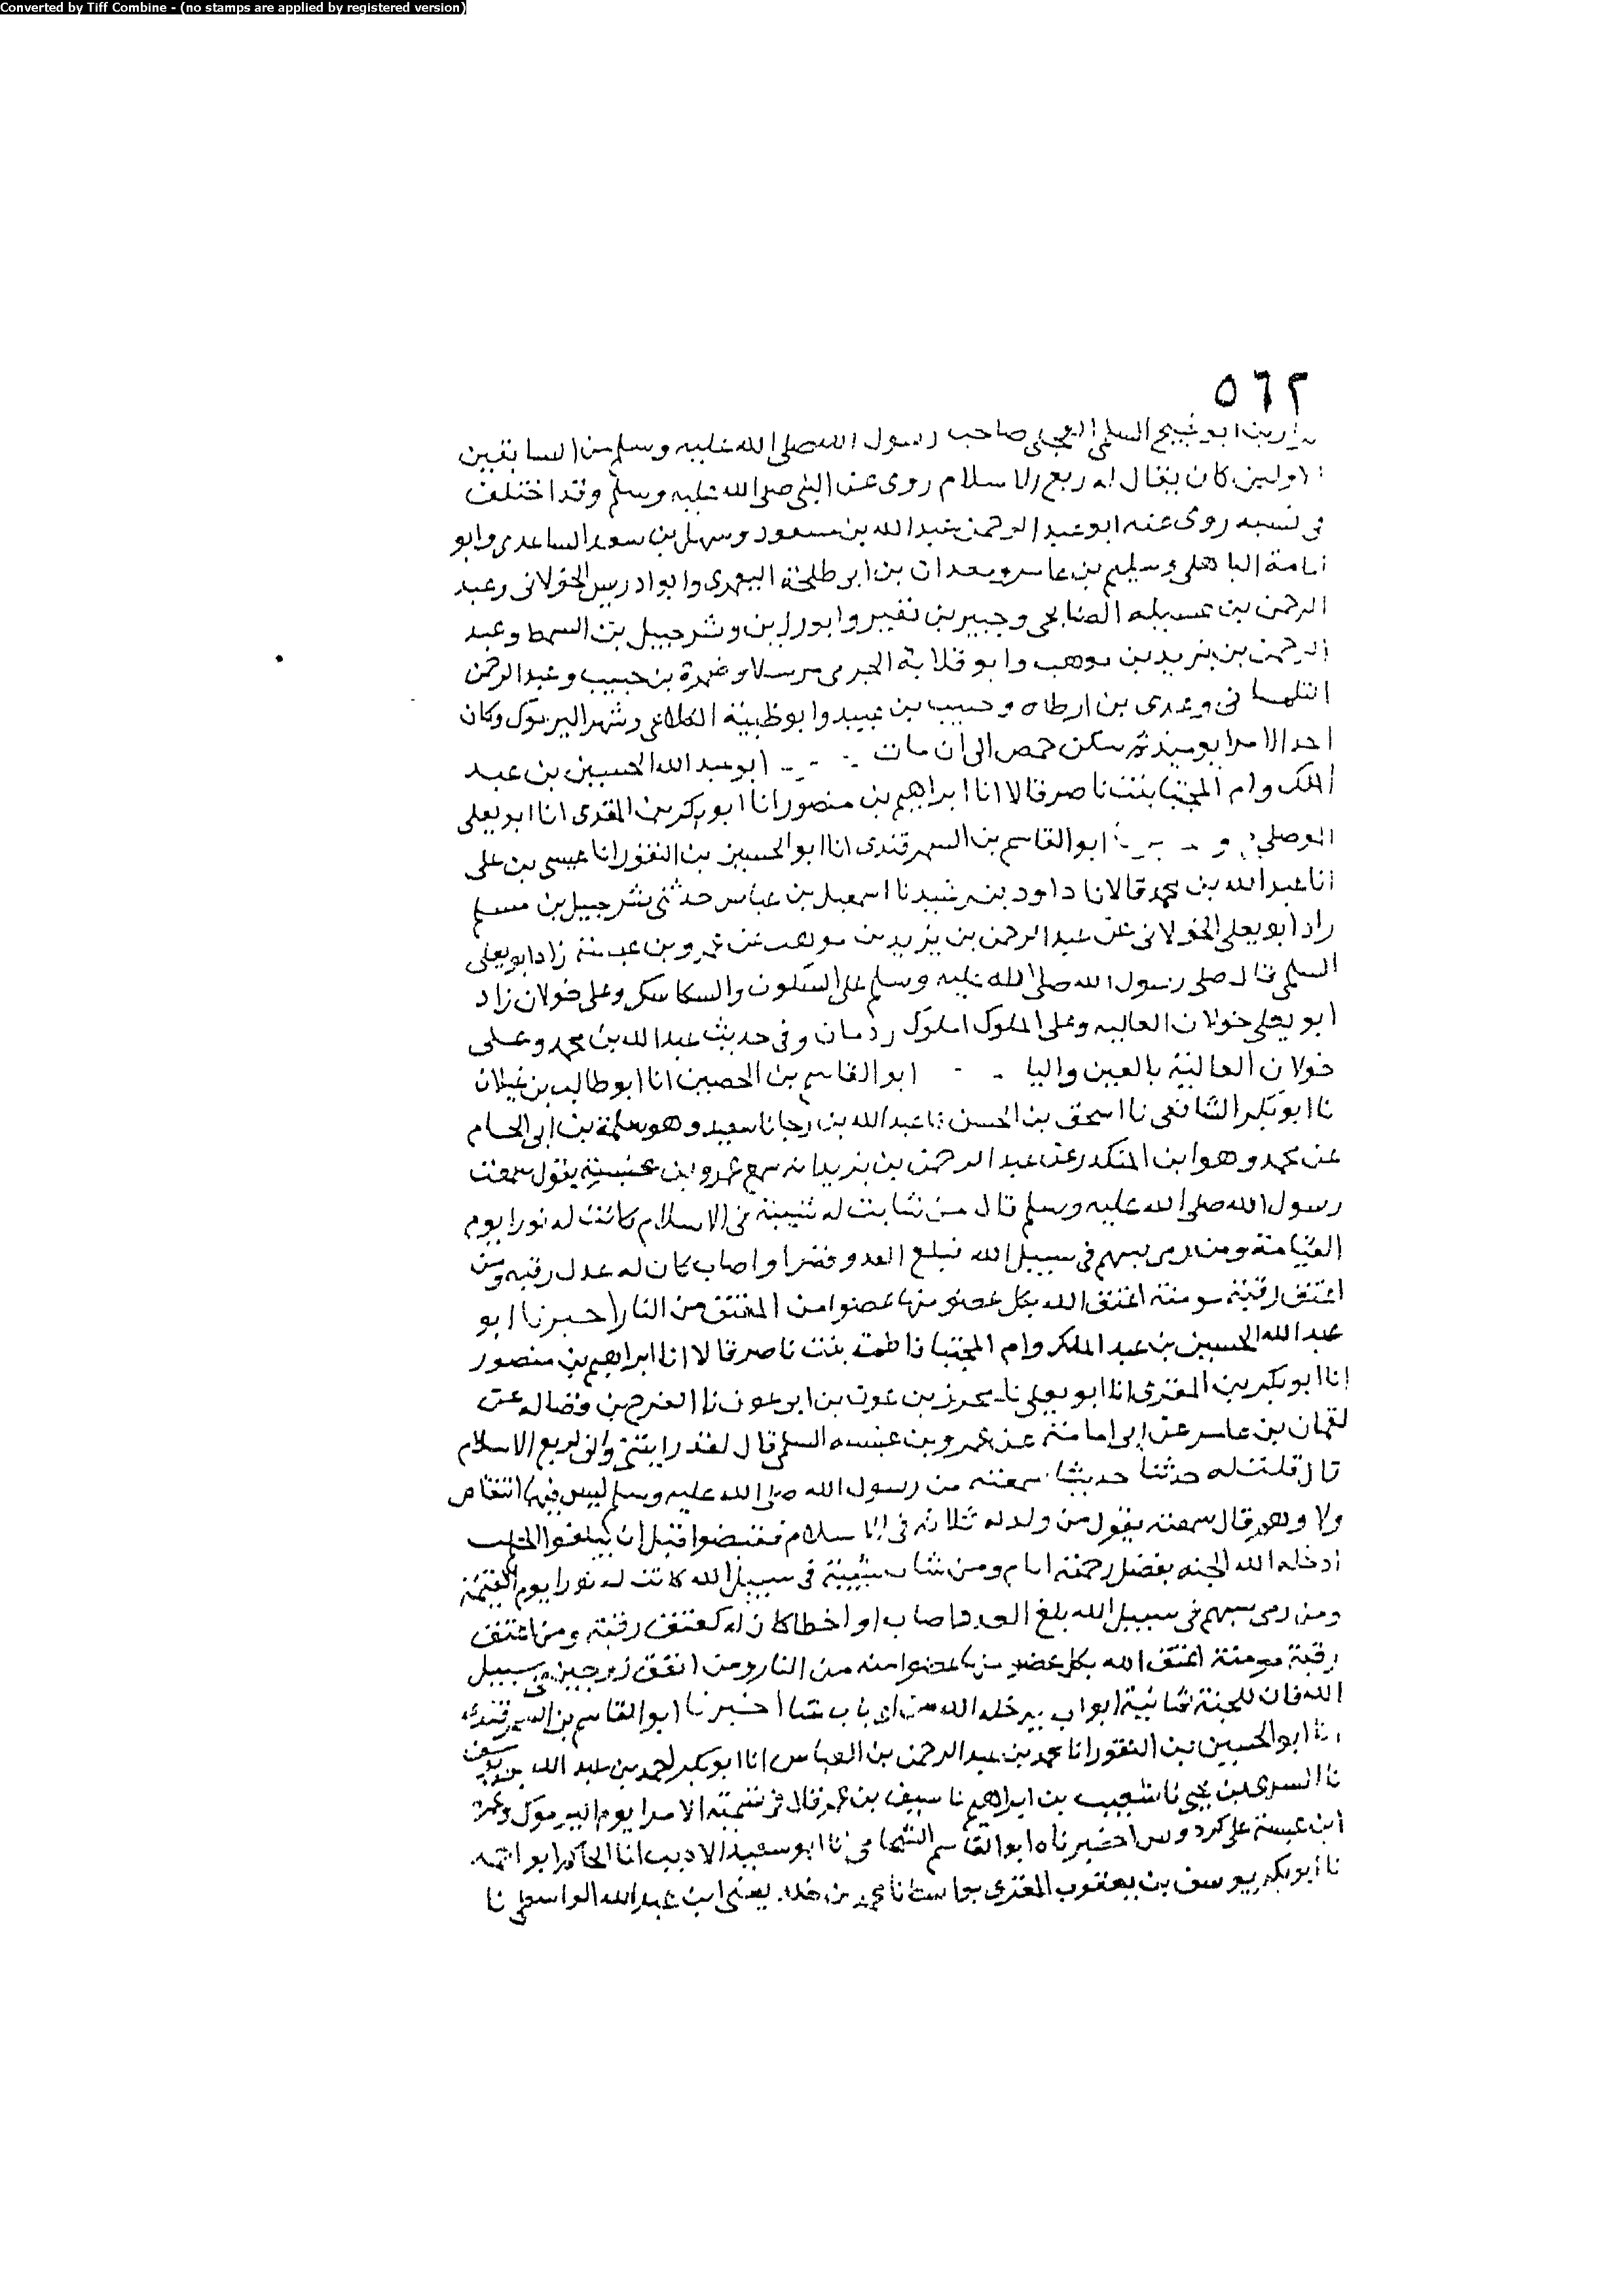 Converted by Tiff Combine - (no stamps are applied by registered version)
٥٦٢
ابو نجيح السلمى البجلى صاحب رسول الله صلى الله عليه وسلم من السابقين
الاولين كان يقال له ربع الاسلام روى عن النبى صلى الله عليه وسلم وقد اختلف
فى نسبه روى عنه ابو عبد الرحمن عبد الله بن مسعود وسهل بن سعد الساعدى وابو
امامة الباهلى وسليم بن عامر ومعدان بن ابى طلحة اليعمرى وابو ادريس الخولانى وعبد
الرحمن بن عسيله الصنابحى وجبير بن نفير وابو رزين وشرحبيل بن السمط وعبد
الرحمن بن يزيد بن موهب وابو قلابة الجرمى مرسلا وضمرة بن حبيب وعبد الرحمن
وعدى بن ارطاه وحبيب بن عبيد وابو ظبية الكلاعى وشهد اليرموك وكان
احد الامرا يوميذ ثم سكن حمص الى ان مات ابو عبد الله الحسين بن عبد
الملك وام المجتبا بنت ناصر قالا انا ابراهيم بن منصور انا ابو بكر بن المقرى انا ابو يعلى
الموصلى ابو القاسم بن السمرقندى انا ابو الحسين بن النقور انا عيسى بن على
انا عبد الله بن محمد قالا نا داود بن رشيد نا اسمعيل بن عياش حدثنى شرحبيل بن مسلم
زاد ابو يعلى الخولانى عن عبد الرحمن بن يزيد بن موهب عن عمرو بن عبسة زاد ابو يعلى
السلمى قال صلى رسول الله صلى الله عليه وسلم على السكون والسكاسك وعلى خولان زاد
ابو يعلى خولان العاليه وعلى الملوك املوك ردمان وفى حديث عبد الله بن محمد وعلى
خولان العالية بالعين واليا ابو القاسم بن الحصين انا ابو طالب بن غيلان
نا ابو بكر الشافعى نا اسحق بن الحسن نا عبد الله بن رجا نا سعيد وهو سلمة بن ابى الحسام
عن محمد وهو ابن المنكدر عن عبد الرحمن بن يزيد انه سمع عمرو بن عنبسة يقول سمعت
رسول الله صلى الله عليه وسلم قال من شابت له شيبة فى الاسلام كانت له نورا يوم
القيامة ومن رمى بسهم فى سبيل الله فبلغ العدو فقصر او اصاب كان له عدل رقبه ومن
اعتق رقبة مومنة اعتق الله بكل عضو منها عضوا من المعتق من النار اخبرنا ابو
عبد الله الحسين بن عبد الملك وام المجتبا فاطمة بنت ناصر قالا انا ابراهيم بن منصور
انا ابو بكر بن المقرى انا ابو يعلى نا محرز بن عون بن ابى عون نا الفرج بن فضاله عن
لقمان بن عامر عن ابى امامة عن عمرو بن عنبسه السلمى قال لقد رايتنى وانى لربع الاسلام
قال قلت له حدثنا حديثا سمعته من رسول الله صلى الله عليه وسلم ليس فيها انتقاص
ولا وهم قال سمعته يقول من ولد له ثلاثه فى الاسلام فقبضوا قبل ان يبلغوا الحنث
ادخله الله الجنه بفضل رحمته اياهم ومن شاب شيبة فى سبيل الله كانت له نورا يوم القيمة
ومن رمى بسهم فى سبيل الله بلغ العدو اصاب او اخطا كان له كعتق رقبة ومن اعتق
رقبة مومنة اعتق الله بكل عضو منها عضوا منه من النار ومن انفق زوجين فى سبيل
الله فان للجنة ثمانية ابواب يدخله الله من اى باب شا اخبرنا ابو القاسم بن السمرقندى
انا ابو الحسين بن النقور انا محمد بن عبد الرحمن بن العباس انا ابو بكر احمد بن عبد الله بن سيف
نا السرى بن يحيى نا شعيب بن ابراهيم نا سيف بن عمر قال فى تسمية الامرا يوم اليرموك وعمرو
ابن عبسة على كردوس اخبرناه ابو القاسم الشحامى نا ابو سعيد الاديب انا الحاكم ابو احمد
نا ابو بكر يوسف بن يعقوب المقرى بواسط نا محمد بن خلد يعنى ابن عبد الله الواسطى نا